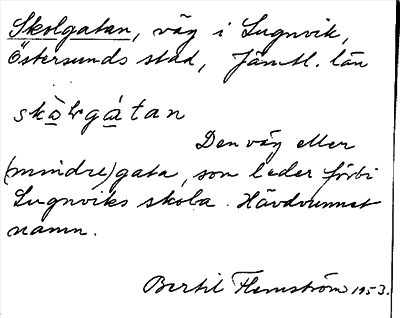 Skolgatan, väg i Lugnvik,
Östersunds stad, Jämtl. län
skò̱lgá̱tan
Den väg eller
(mindre) gata, som leder förbi
Lugnviks skola. Hävdvunnet
namn.
Bertil Flemström 1953.